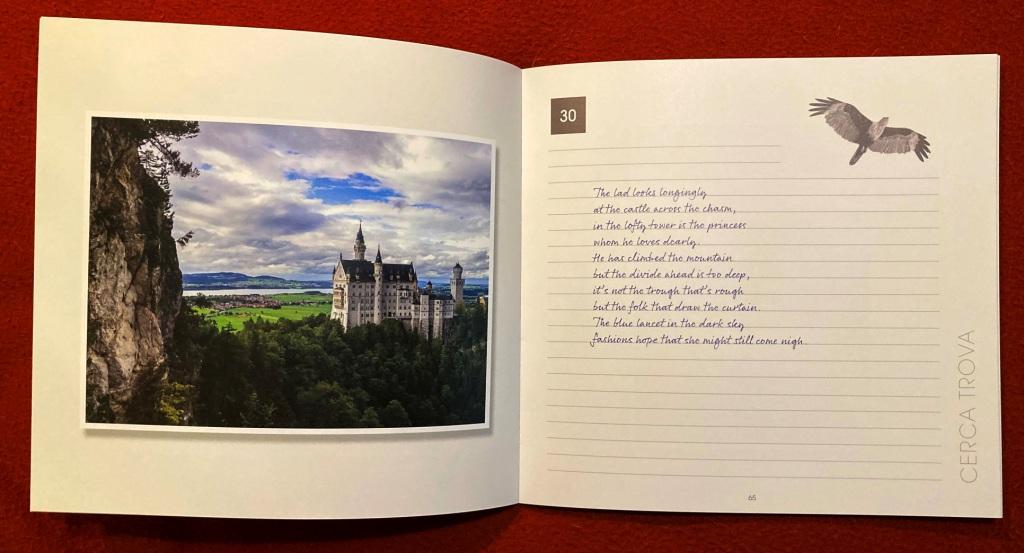 30
The lad looks longingly
at the castle across the chasm,
in the lofty tower is the princess
whom he loves dearly.
He has climbed the mountain
but the divide ahead is too deep,
it's not the trough that's rough
but the folk that draw the curtain.
The blue lancet in the dark sky
fashions hope that she might still come nigh.
CERCA TROVA
65